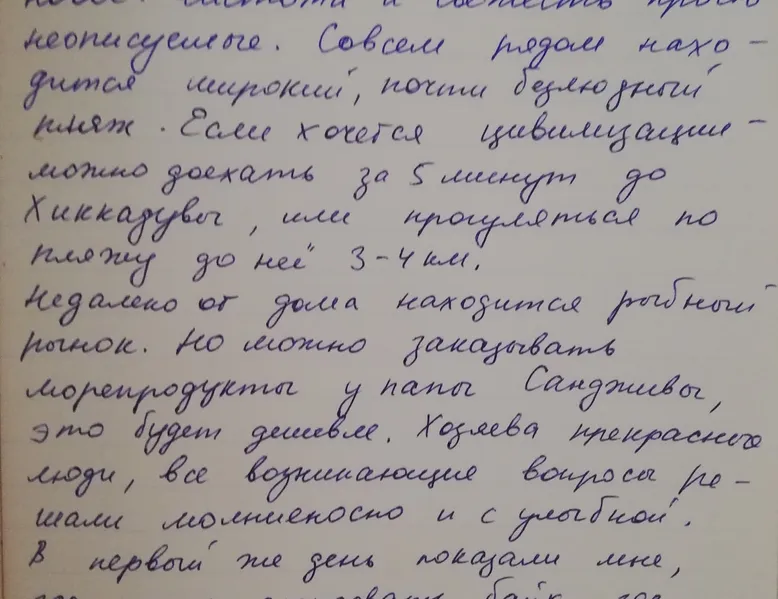 чистота и свежесть просто
неописуемые. Совсем рядом нахо-
дится широкий, почти безлюдный
пляж. Если хочется цивилизации -
можно доехать за 5 минут до
Хиккадувы, или прогуляться по
пляжу до неё 3-4 км.
Недалеко от дома находится рыбный
рынок. Но можно заказывать
морепродукты у папы Сандживы,
это будет дешевле. Хозяева прекрасные
люди, все возникающие вопросы ре-
шали молниеносно и с улыбкой.
В первый же день показали мне,
байк